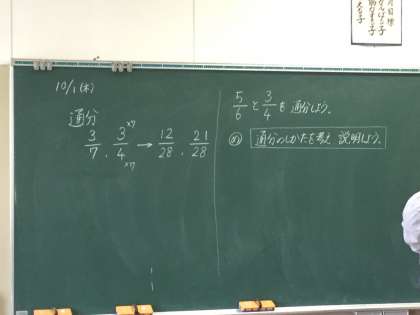 10/1(木)
通分
3/7 . 3/4 ×7 ×7 → 12/28 . 21/28
5/6 と 3/4 を 通分しよう。
め 通分のしかたを考え 説明しよう。
月目標